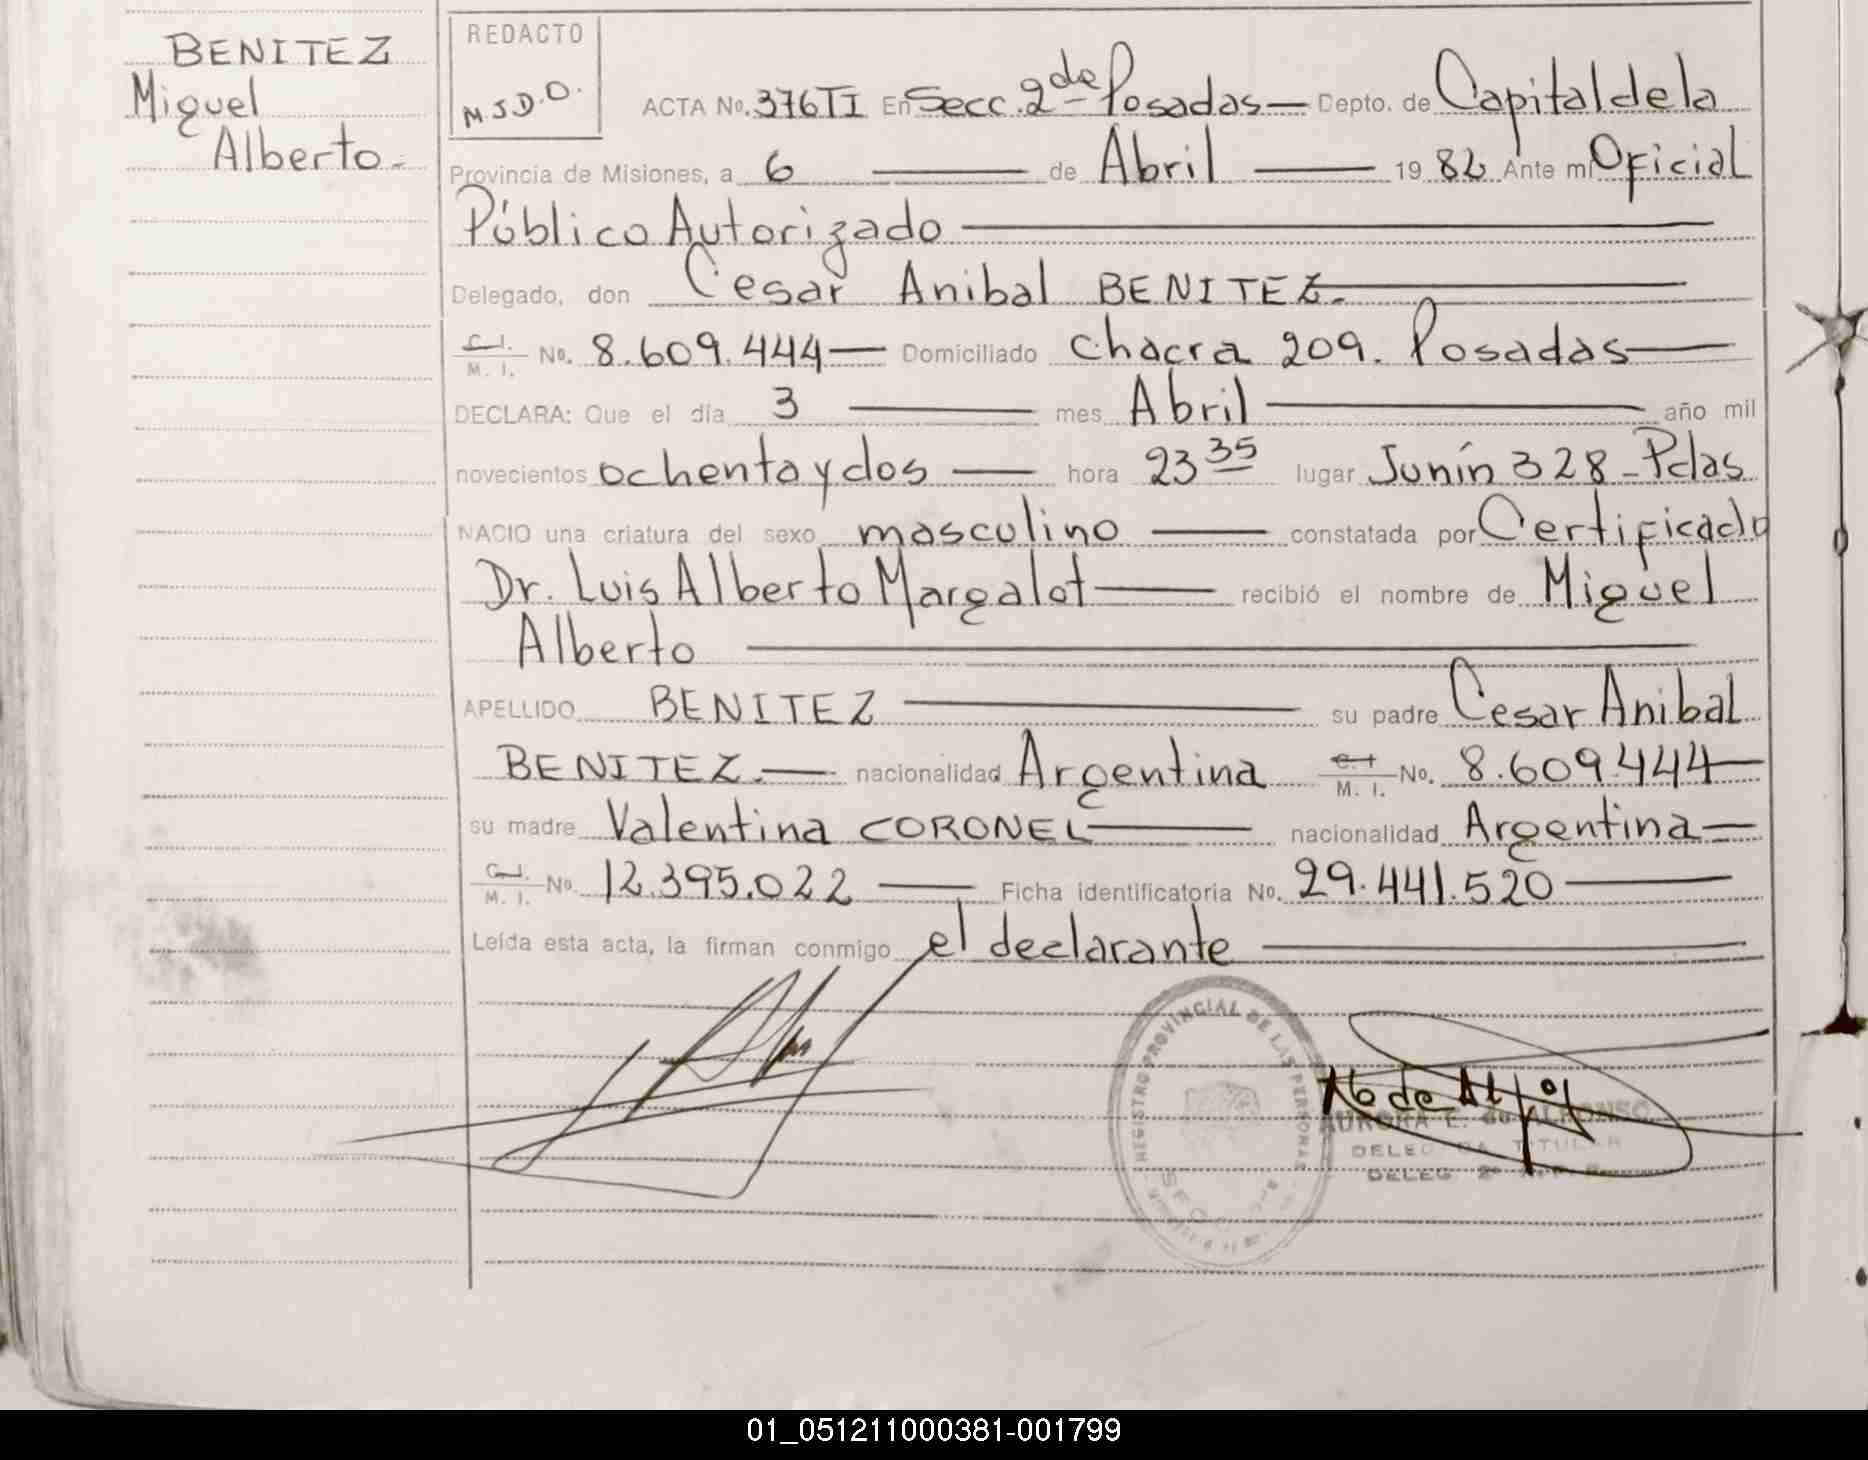 BENITEZ
Miguel
Alberto-
REDACTO
M.J.D.O.
ACTA No. 376TI En Secc. 2da Posadas— Depto. de Capital de la
Provincia de Misiones, a 6 — de Abril — 19 82 Ante mí Oficial
Público Autorizado —
Delegado, don Cesar Anibal BENITEZ.—
C.I. / M. I. No. 8.609.444— Domiciliado Chacra 209. Posadas—
DECLARA: Que el día 3 — mes Abril — año mil
novecientos ochenta y dos — hora 23 35 lugar Junín 328-Pdas
NACIO una criatura del sexo masculino — constatada por Certificado
Dr. Luis Alberto Margalot — recibió el nombre de Miguel
Alberto —
APELLIDO BENITEZ — su padre Cesar Anibal
BENITEZ.— nacionalidad Argentina C.I. / M. I. No. 8.609.444—
su madre Valentina CORONEL— nacionalidad Argentina—
C.I. / M. I. No. 12.395.022 — Ficha identificatoria No. 29.441.520 —
Leída esta acta, la firman conmigo el declarante —
REGISTRO PROVINCIAL DE LAS PERSONAS
AURORA E. de ALFONSO
DELEGADA TITULAR
DELEG. 2a
01_051211000381-001799